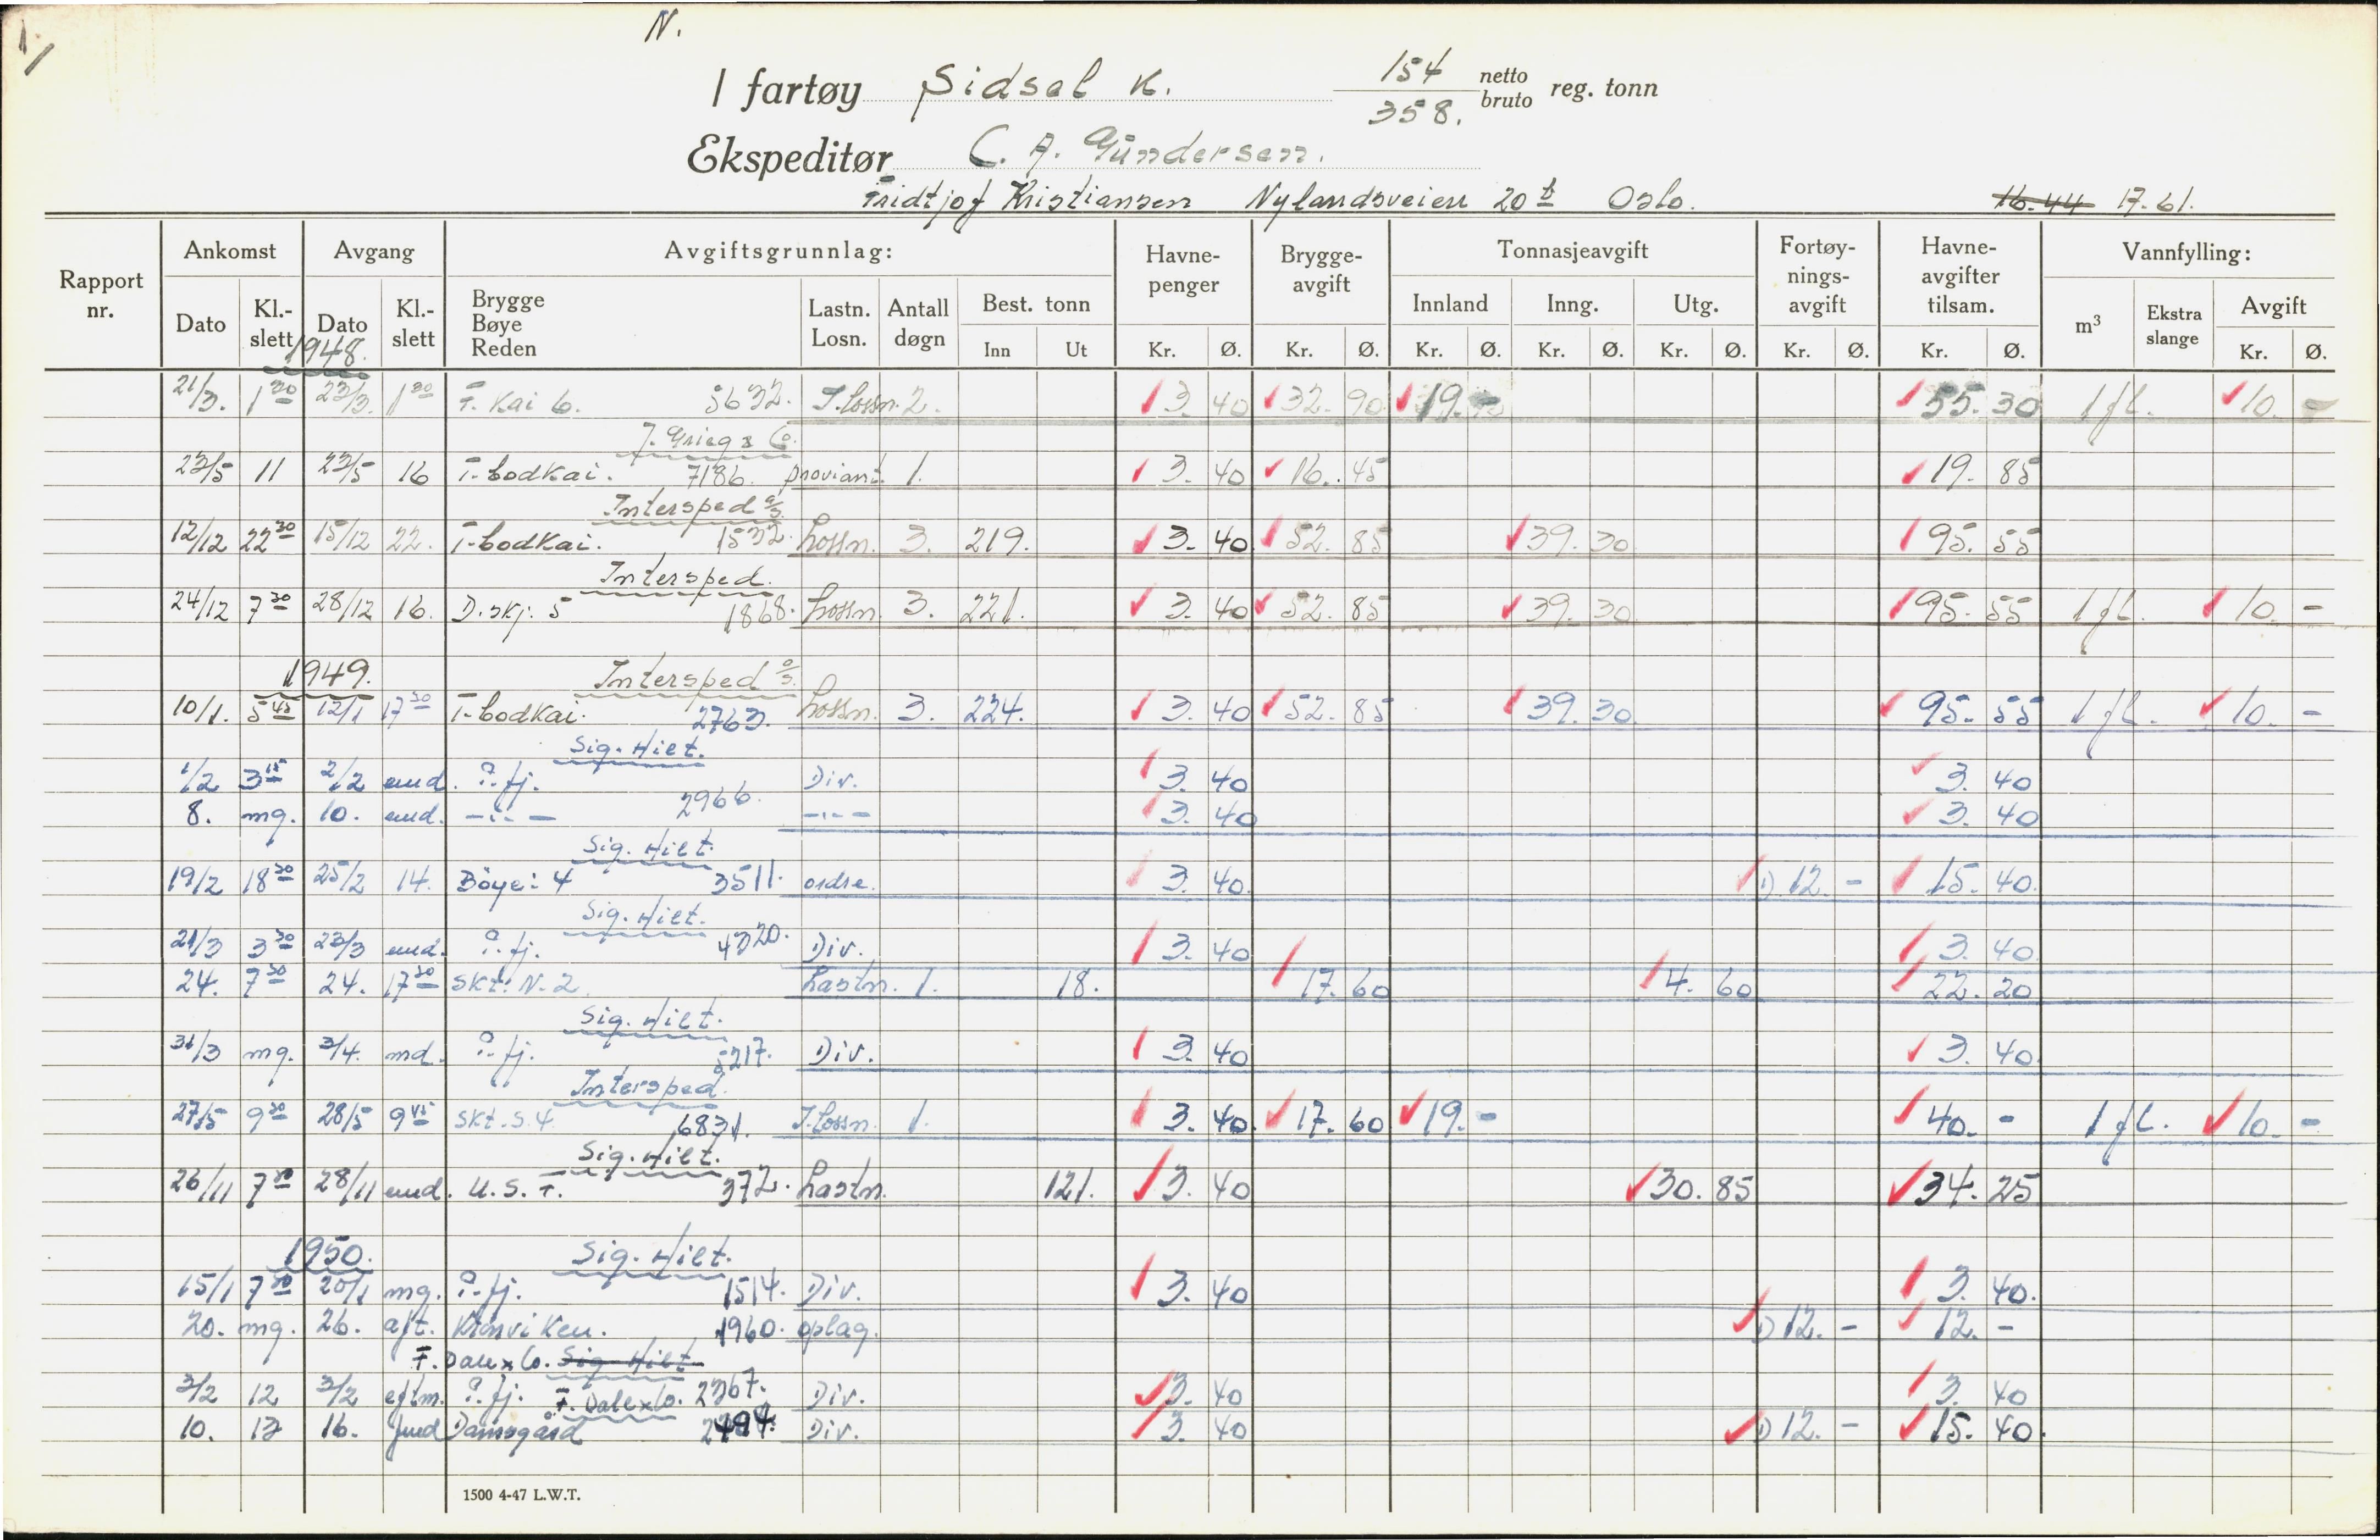 1/
N.
I fartøy Sidsel K. 154 netto reg. tonn
358. bruto
Ekspeditør C. A. Gundersen.
Fridtjof Kristiansen Nylandsveien 20 b Oslo. 16.44 17.61.
Rapport nr. Ankomst Avgang Avgiftsgrunnlag: Havne-penger Brygge-avgift Tonnasjeavgift Fortøy-nings-avgift Havne-avgifter tilsam. Vannfylling:
Dato Kl.-slett Dato Kl.-slett Brygge Bøye Reden Lastn. Losn. Antall døgn Best. tonn Innland Inng. Utg. m³ Ekstra slange Avgift
Inn Ut Kr. Ø. Kr. Ø. Kr. Ø. Kr. Ø. Kr. Ø. Kr. Ø. Kr. Ø. Kr. Ø.
1948.
21/3. 1 30 23/3. 1 30 T. Kai 6. 5632. I. lossn. 2. 3. 40 32. 90 19. - 55. 30 1 fl. 10. -
J. Grieg & Co.
23/5 11 23/5 16 T-bodkai. 7186. proviant. 1. 3. 40 16. 45 19. 85
Intersped a/s.
12/12 22 30 15/12 22. T-bodkai. 1532. Lossn. 3. 219. 3. 40 52. 85 39. 30 95. 55
Intersped.
24/12 7 30 28/12 16. D. skj. 5 1868. Lossn. 3. 221. 3. 40 52. 85 39. 30 95. 55 1 fl. 10. -
1949. Intersped a/s.
10/1. 5 45 12/1 17 30 T-bodkai. 2763. Lossn. 3. 224. 3. 40 52. 85 39. 30 95. 55 1 fl. 10. -
Sig. Hilt.
1/2 3 15 2/2 emd. P. fj. Div. 3. 40 3. 40
8. mg. 10. emd. -"- 2966. -"- 3. 40 3. 40
Sig. Hilt.
19/2 18 30 25/2 14. Böye: 4 3511. ordre. 3. 40. D 12. - 15. 40.
Sig. Hilt.
21/3 3 30 23/3 emd. P. fj. 4320. Div. 3. 40 3. 40
24. 7 30 24. 17 30 Skt. N. 2. Lastn. 1. 18. 17. 60 4. 60 22. 20
Sig. Hilt.
31/3 mg. 3/4. md. P. fj. 5217. Div. 3. 40 3. 40.
Intersped.
27/5 9 30 28/5 9 45 Skt. S. 4. 6831. I. Lossn. 1. 3. 40. 17. 60 19. - 40. - 1 fl. 10. -
Sig. Hilt.
26/11 7 30 28/11 emd. U. S. T. 372. Lastn. 121. 3. 40 30. 85 34. 25
1950. Sig. Hilt.
15/1 7 30 20/1 mg. P. fj. 1514. Div. 3. 40 3. 40.
20. mg. 26. aft. 1960. oplag. D 12. - 12. -
F. Dale & Co. Sig. Hilt
3/2 12 3/2 eftm. P. fj. 2367. Div. 3. 40 3. 40
F. Dale & Co.
10. 13 16. fmd Damsgård Div. 3. 40 D 12. - 15. 40.
1500 4-47 L.W.T.